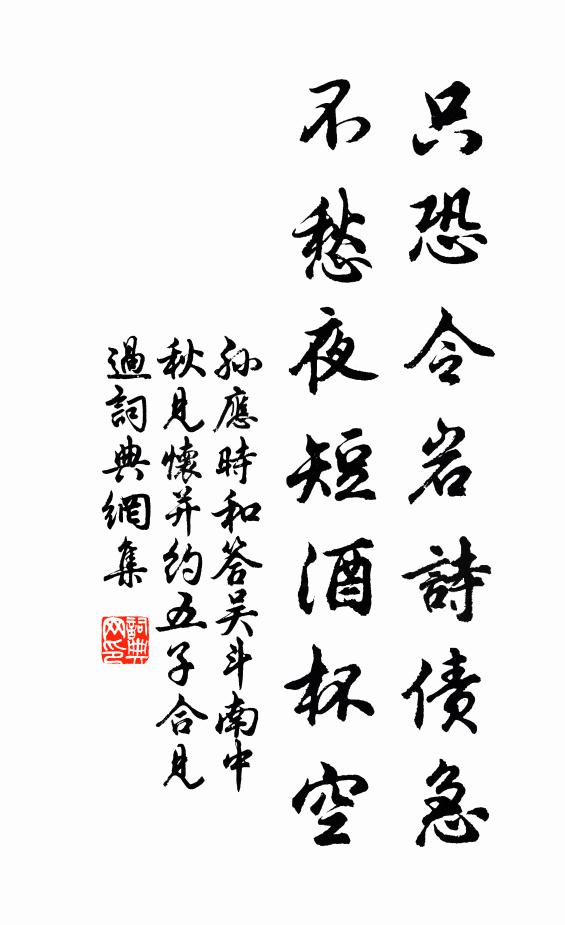 只恐令岩詩債急
不愁夜短酒杯空
孫應時和答吳斗南中
秋見懷并約五子合見
過詞典網集
詞典网印